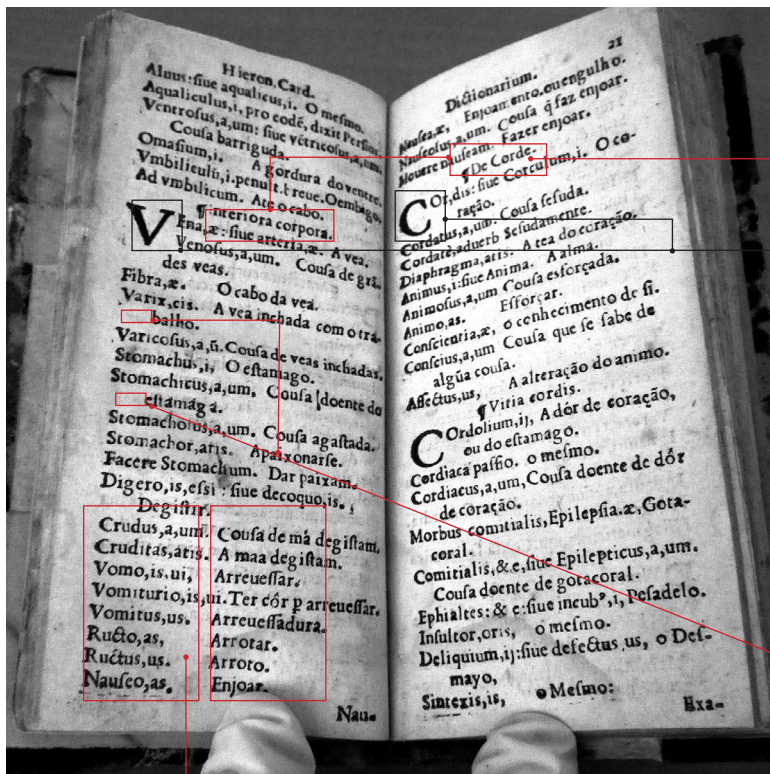 Hieron. Card.
Aluus: siue aqualicus, i. O mesmo.
Aqualiculus, i, pro eodē, dixit Persius.
Ventrosus, a, um: siue vētricosus, a, um,
Cousa barriguda.
Omasium, i. A gordura do ventre.
Vmbiliculũ, i. penult. breue. O embigo,
Ad vmbilicum. Ate o cabo.
¶ Interiora corpora.
VEna, æ: siue arteria, æ. A vea.
Venosus, a, um. Cousa de grā.
des veas.
Fibra, æ. O cabo da vea.
Varix, cis. A vea inchada com o tra-
balho.
Varicosus, a, ũ. Cousa de veas inchadas.
Stomachus, i, O estamago.
Stomachicus, a, um, Cousa doente do
estamága.
Stomachosus, a, um. Cousa agastada.
Stomachor, aris. Apaixonarse.
Facere Stomachum. Dar paixam.
Digero, is, essi: siue decoquo, is.
Degistir.
Crudus, a, um. Cousa de má degistam.
Cruditas, atis. A maa degistam.
Vomo, is, ui, Arreuessar.
Vomiturio, is, ui. Ter côr p arreuessar.
Vomitus, us. Arreuessadura.
Ructo, as, Arrotar.
Ructus, us. Arroto.
Nauseo, as. Enjoar.
Nau-
21
Dictionarium.
Nausea, æ, Enjoamento. ou engulho.
Nauseosus, a, um. Cousa q̃ faz enjoar.
Mouere nauseam. Fazer enjoar.
¶ De Corde.
COr, dis: siue Corculum, i. O co-
ração.
Cordatus, a, um. Cousa sesuda.
Cordatè, aduerb Sesudamente.
Diaphragma, atis. A tea do coração.
Animus, i: siue Anima. A alma.
Animosus, a, um Cousa esforçada.
Animo, as. Esforçar.
Conscientia, æ, o conhecimento de si.
Conscius, a, um Cousa que se sabe de
algũa cousa.
Affectus, us, A alteração do animo.
¶ Vitia cordis.
COrdolium, ij, A dôr de coração,
ou do estamago.
Cordiaca passio. o mesmo.
Cordiacus, a, um, Cousa doente de dôr
de coração.
Morbus comitialis, Epilepsia. æ, Gota-
coral.
Comitialis, & e, siue Epilepticus, a, um.
Cousa doente de gotacoral.
Ephialtes: & e: siue incubꝰ, i, Pesadelo.
Insultor, oris, o mesmo.
Deliquium, ij: siue defectus us, o Des-
mayo,
Sintexis, is, o Mesmo:
Exa-